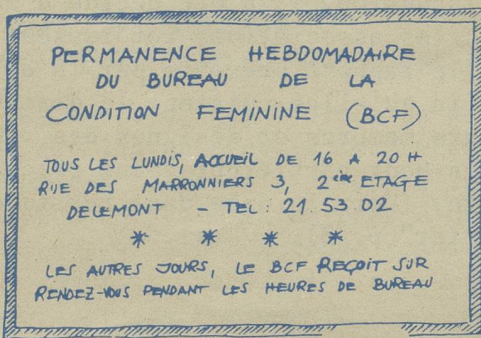 PERMANENCE HEBDOMADAIRE
DU BUREAU DE LA
CONDITION FEMININE (BCF)
TOUS LES LUNDIS, ACCUEIL DE 16 A 20 H
RUE DES MARRONNIERS 3, 2ème ETAGE
DELEMONT - TEL : 21 53 02
* * * *
LES AUTRES JOURS, LE BCF REÇOIT SUR
RENDEZ-VOUS PENDANT LES HEURES DE BUREAU